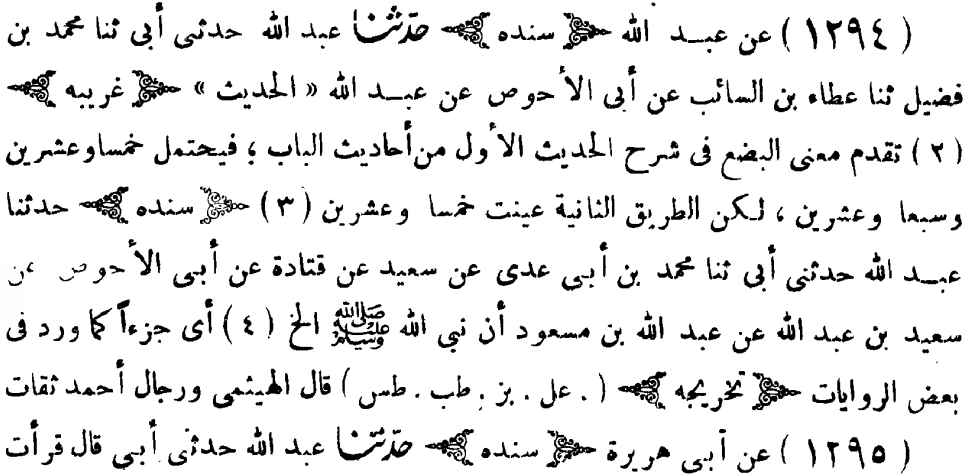 ( ١٢٩٤ ) عن عبــد الله ﴿ سنده ﴾ حدّثنا عبد الله حدثنى أبى ثنا محمد بن
فضيل ثنا عطاء بن السائب عن أبى الأحوص عن عبــد الله « الحديث » ﴿ غريبه ﴾
( ٢ ) تقدم معنى البضع فى شرح الحديث الأول من أحاديث الباب ؛ فيحتمل خمسا وعشرين
وسبعا وعشرين ، لـكن الطريق الثانية عينت خمسا وعشرين ( ٣ ) ﴿ سنده ﴾ حدثنا
عبــد الله حدثنى أبى ثنا محمد بن أبى عدى عن سعيد عن قتادة عن أبى الأحوص عن
سعيد بن عبد الله عن عبد الله بن مسعود أن نبي الله ﷺ الخ ( ٤ ) أى جزءاً كما ورد فى
بعض الروايات ﴿ تخريجه ﴾ ( . عل . بز . طب . طس ) قال الهيثمى ورجال أحمد ثقات
( ١٢٩٥ ) عن أبى هريرة ﴿ سنده ﴾ حدّثنا عبد الله حدثنى أبى قال قرأت